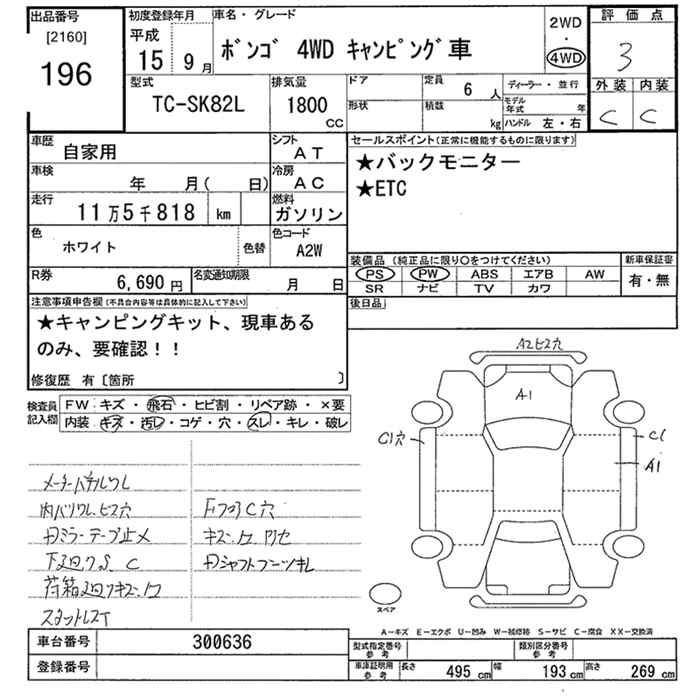 出品番号
[2160]
196
初度登録年月
平成
15 9 月
車名・グレード
ボンゴ 4WD キャンピング車
2WD
・
4WD
評価点
3
外装 内装
C C
型式
TC-SK82L
排気量
1800
cc
ドア
形状
定員
6 人
積数
kg
ディーラー・並行
モデル年式 年
ハンドル 左・右
車歴
自家用
シフト
AT
車検
年 月( 日)
冷房
AC
走行
11万5千818 km
燃料
ガソリン
色
ホワイト
色替
色コード
A2W
R券
6,690 円
名変通知期限
月 日
セールスポイント(正常に機能するものに限ります)
★バックモニター
★ETC
装備品 (純正品に限り○をつけてください)
PS PW ABS エアB AW
SR ナビ TV カワ
新車保証書
有・無
後日品
注意事項申告欄(不具合内容等は具体的に記入して下さい)
★キャンピングキット、現車ある
のみ、要確認!!
修復歴 有〔箇所 〕
検査員記入欄
FW:キズ・飛石・ヒビ割・リペア跡・×要
内装:キズ・汚レ・コゲ・穴・スレ・キレ・破レ
メーターパネルワレ
内バリワレ、ビス穴
Fフロア C穴
Fミラーテープ止メ
キズ・凹
下廻り S、C
シャフトブーツキレ
荷箱廻りキズ・凹
スタットレス
A2ビス穴
A1
C1穴
C1
A1
スペア
A-キズ E-エクボ U-凹み W-補修跡 S-サビ C-腐食 XX-交換済
車台番号 300636
登録番号
型式指定番号
参考
類別区分番号
参考
車庫証明用
参考
長さ 495 cm 幅 193 cm 高さ 269 cm